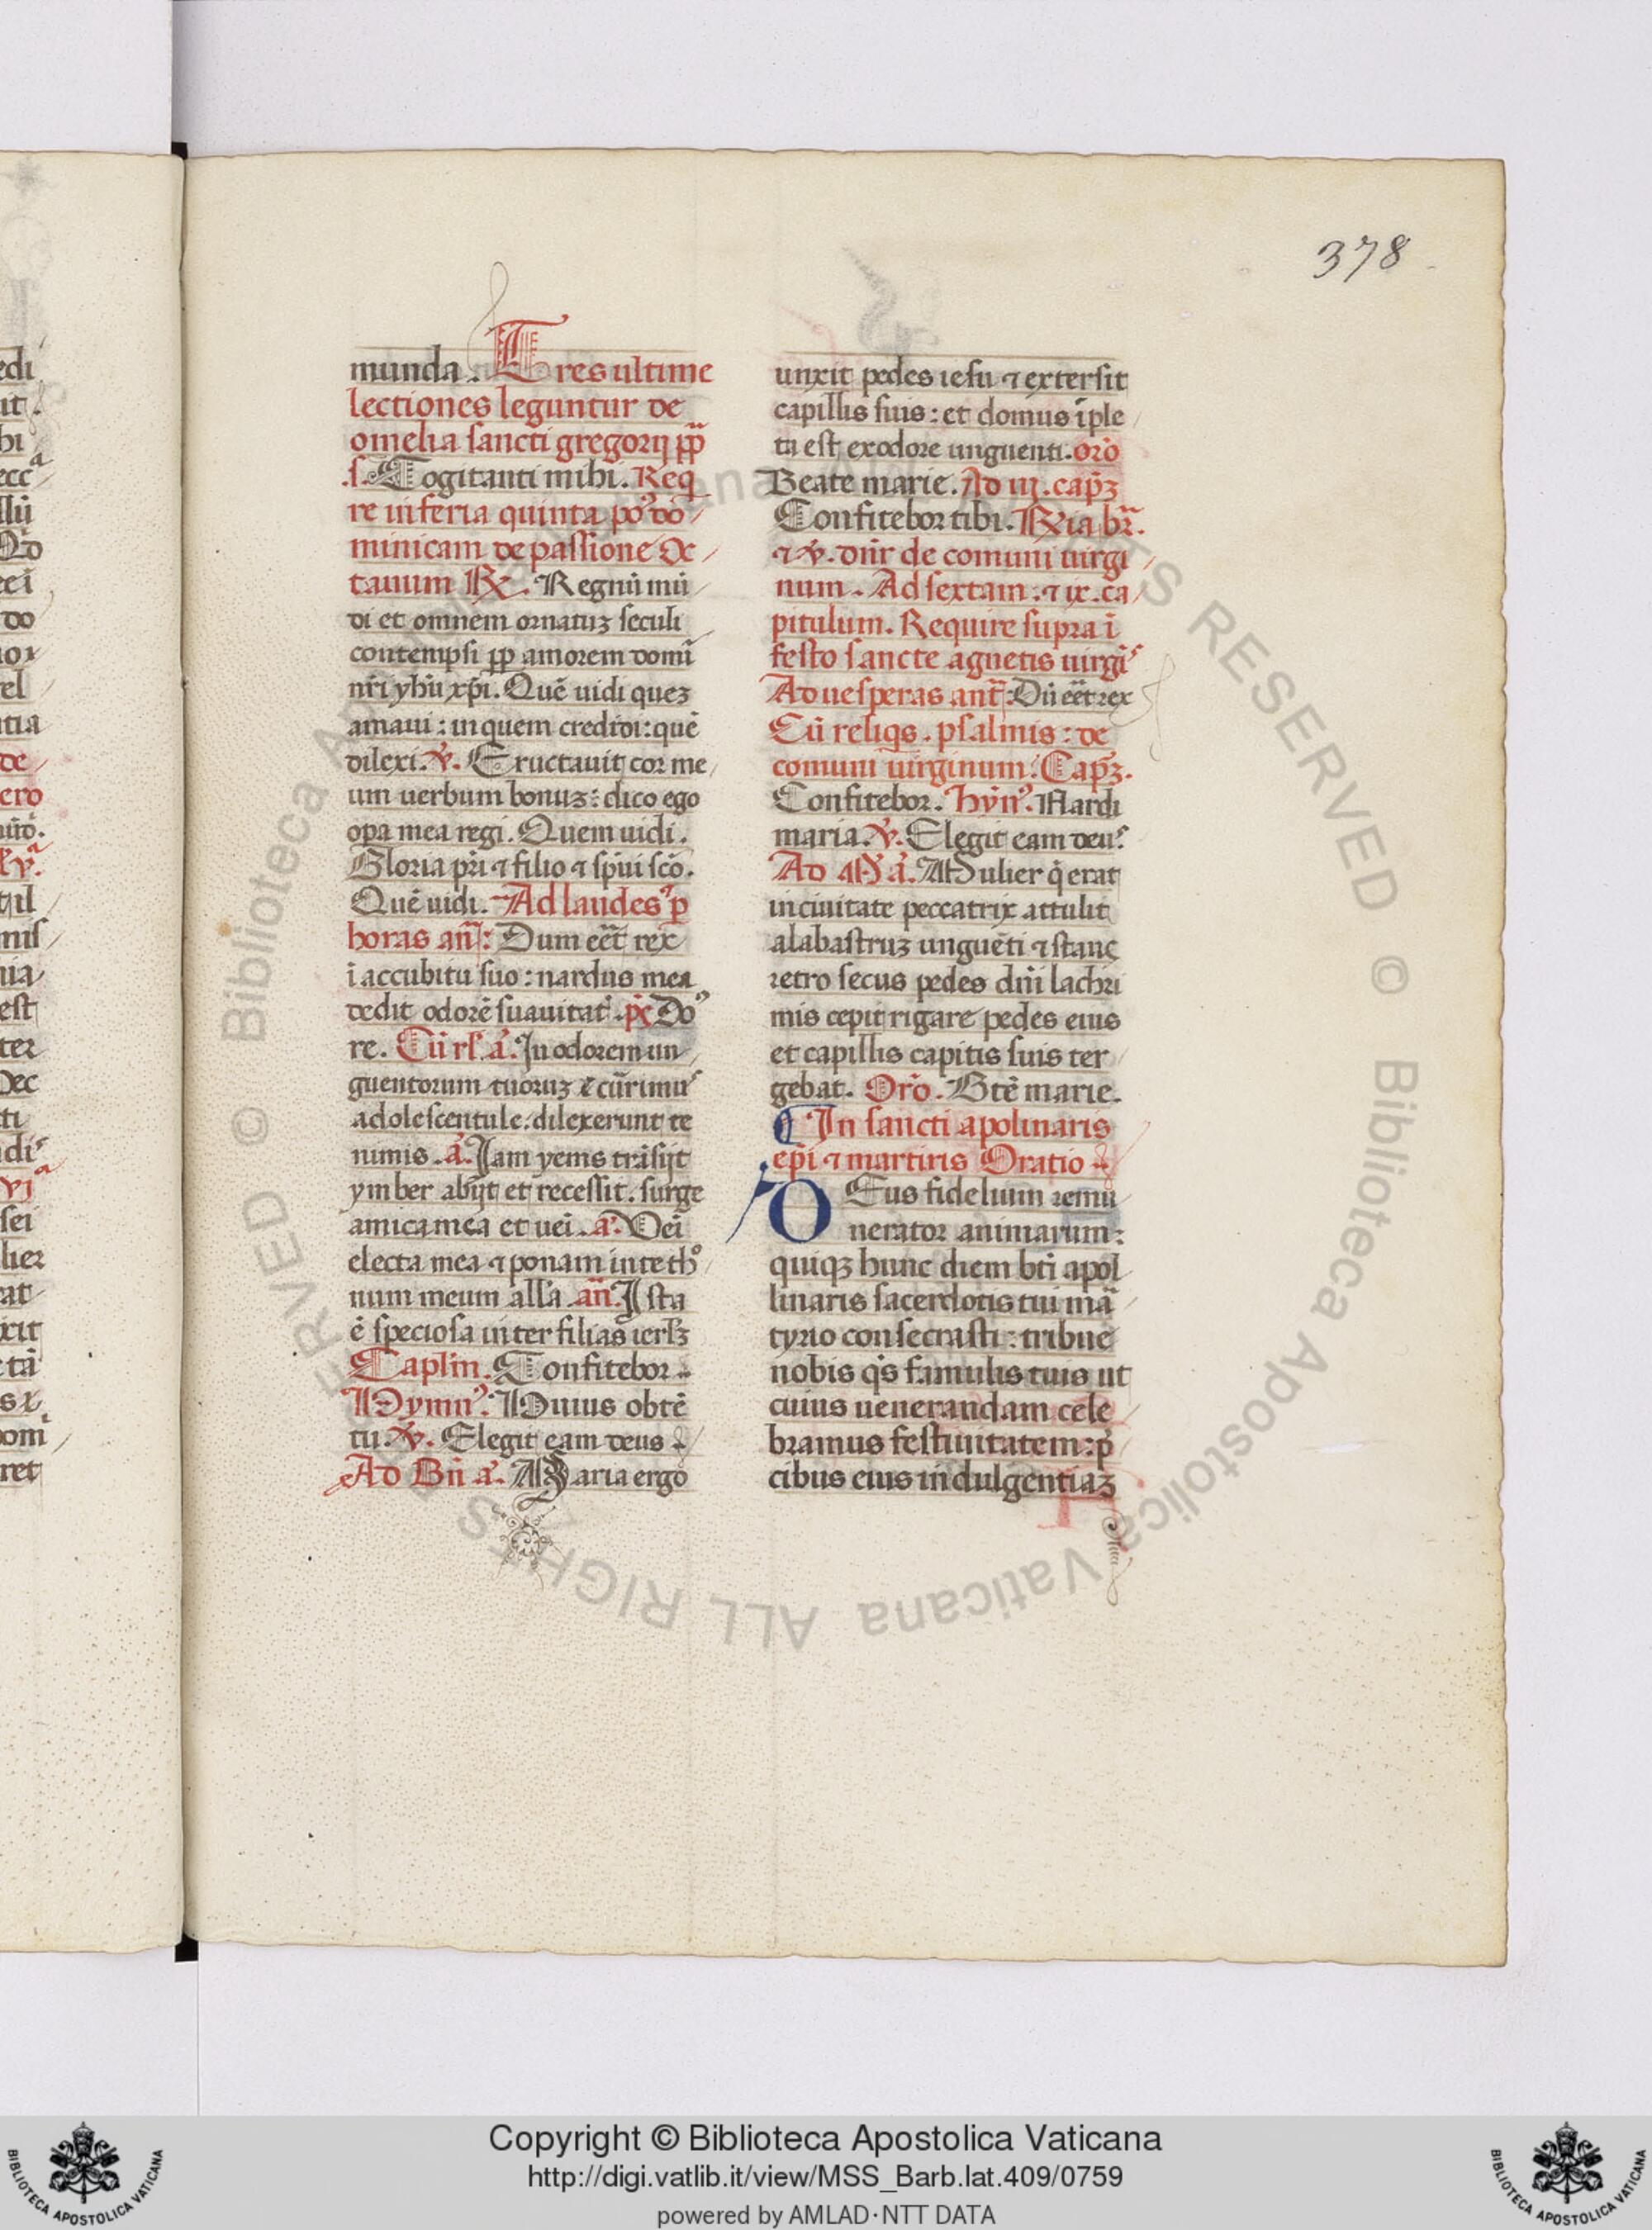 378
munda. Tres ultime
lectiones leguntur de
omelia sancti gregorij pp̄
.s. Cogitanti mihi. Req
re in feria quinta po᷒ do
minicam de passione Oc
tauum ℟. Regnū mū
di et omnem ornatuꝫ seculi
contempsi ꝓp amorem domī
nr̄i yhū xp̄i. Quē uidi queꝫ
amaui: in quem credidi: quē
dilexi. ℣. Eructauit cor me
um uerbum bonuꝫ: dico ego
opa mea regi. Quem uidi.
Gloria pr̄i ⁊ filio ⁊ sp̄ui sc̄o.
Quē uidi. Ad laudes ⁊ p
horas an̄: Dum eēt rex
ī accubitu suo: nardus mea
dedit odorē suauitat᷒. p̄s Do
re. Cū rl̄. a᷒. In odorem un
guentorum tuoruꝫ cūrimus
adolescentule: dilexerunt te
nimis. a᷒. Iam yems trāsijt
ymber abijt et recessit. surge
amica mea et uei̇. a᷒. Vei̇
electa mea ⁊ ponam in te th᷒
num meum all'a. an̄. Ista
ē speciosa inter filias ierl̄ꝫ
Caplm̄. Confitebor.
Hymn᷒. Huius obtē
tu. ℣. Elegit eam deus
Ad Bn̄ a᷒. Maria ergo
unxit pedes iesu ⁊ extersit
capillis suis: et domus īple
ta est ex odore unguenti. or̄o
Beate marie. Ad iij. cap̄ꝫ
Confitebor tibi. ℟ia br̄.
⁊ ℣. dn̄r de comuni uirgi
num. Ad sextam: ⁊ ix. ca
pitulum. Require supra ī
festo sancte agnetis uirgīs
Ad uesperas ant̄: Dū eēt rex
Cū reliqs. psalmis: de
comuni uirginum. Cap̄ꝫ.
Confitebor. Hyn̄᷒. Nardi
maria. ℣. Elegit eam deus.
Ad M a᷒. Mulier q̄ erat
in ciuitate peccatrix attulit
alabastruꝫ unguēti ⁊ stans
retro secus pedes dn̄i lachri
mis cepit rigare pedes eius
et capillis capitis suis ter
gebat. Or̄o. Btē marie.
¶ In sancti apolinaris
ep̄i ⁊ martiris Oratio
DEus fidelium remu
nerator animarum:
quiqꝫ hunc diem bt̄i apol
linaris sacerdotis tui mā
tyrio consecrasti: tribue
nobis q̄s famulis tuis ut
cuius uenerandam cele
bramus festiuitatem: p̄
cibus eius indulgentiaꝫ
Copyright © Biblioteca Apostolica Vaticana
http://digi.vatlib.it/view/MSS_Barb.lat.409/0759
powered by AMLAD·NTT DATA
BIBLIOTECA APOSTOLICA VATICANA
BIBLIOTECA APOSTOLICA VATICANA